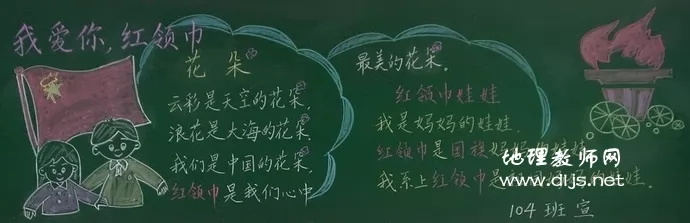 我爱你,红领巾
花朵
云彩是天空的花朵,
浪花是大海的花朵,
我们是中国的花朵,
红领巾是我们心中
最美的花朵。
红领巾娃娃
我是妈妈的娃娃,
红领巾是国旗妈妈的娃娃
我系上红领巾是 妈妈的娃娃。
104班宣
地理教师网
www.dljs.net